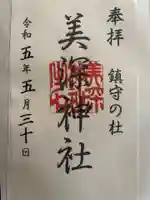 奉拝
鎮守の杜
美深神社
令和五年五月三十日